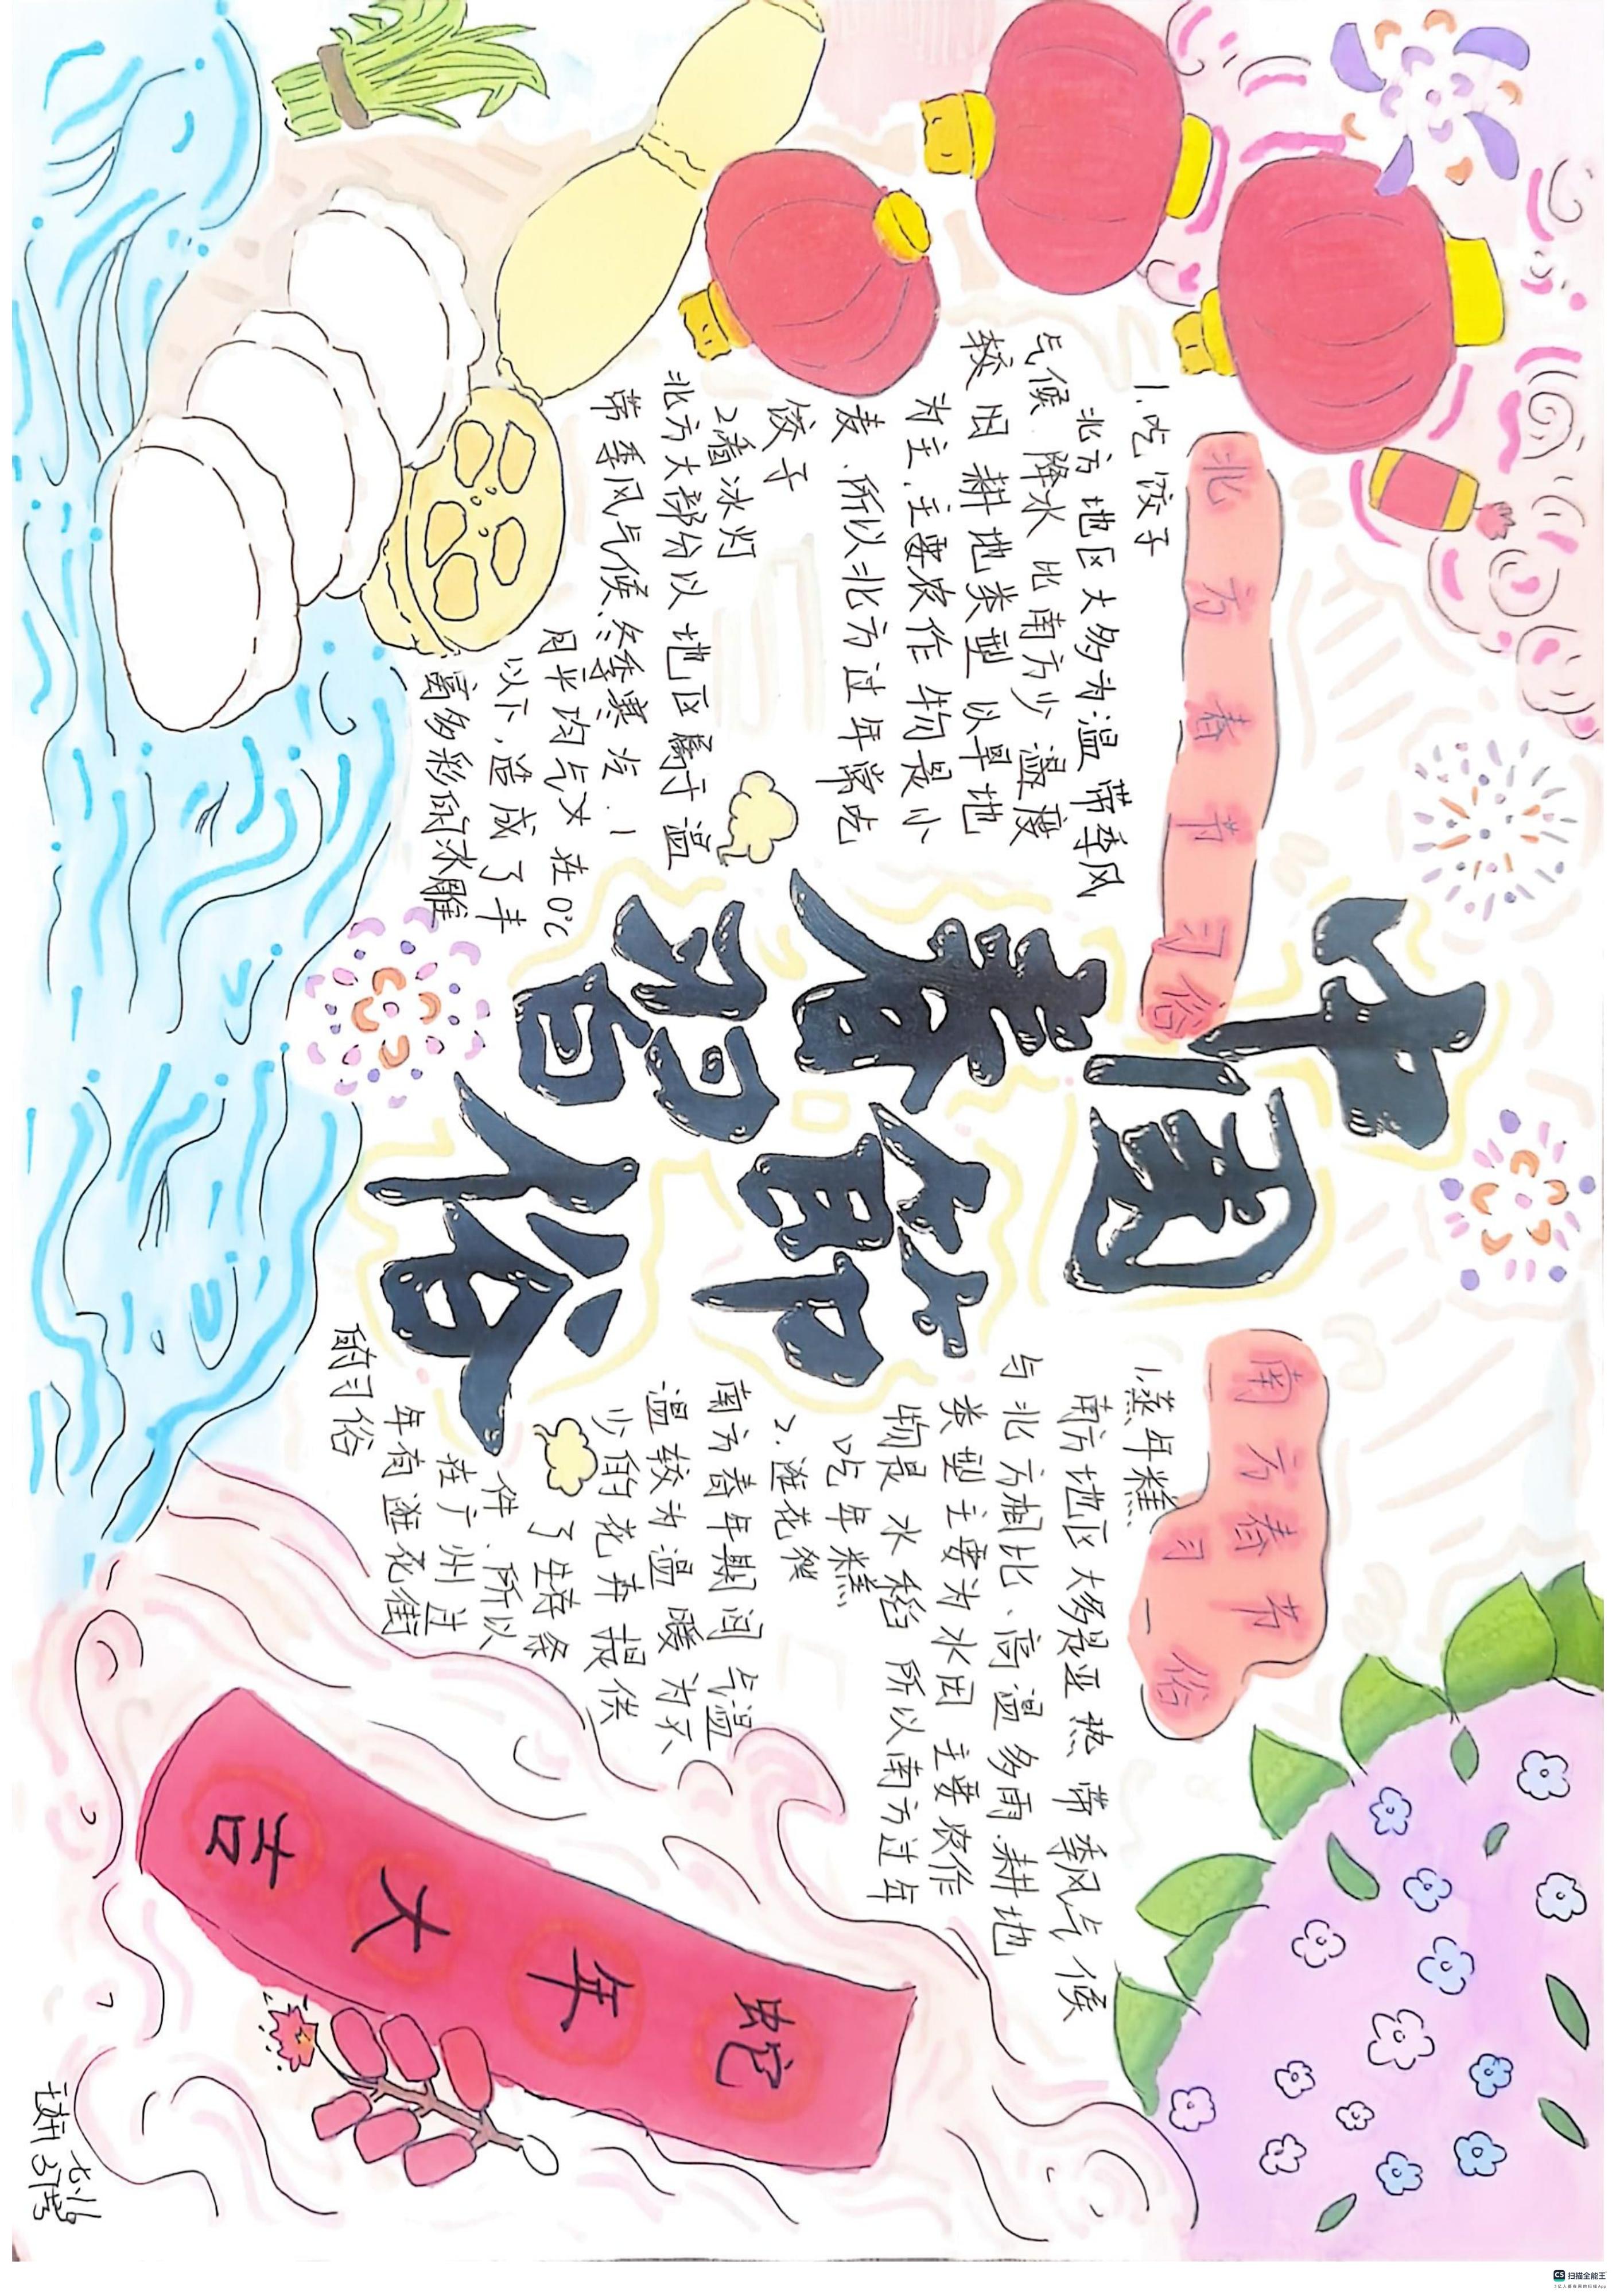 中国
春节
习俗
北方春节习俗
1.吃饺子
北方地区大多为温带季风
气候.降水比南方少 温度
较因 耕地类型以旱地
为主.主要农作物是小
麦.所以北方过年常吃
饺子
北方大部分以地区属于温
带季风气候.冬季寒冷.1
月平均气 在0℃
以下.造成了丰
富多彩的冰雕
南方春节习俗
1.蒸年糕
南方地区大多是亚热带季风气候
与北方相比.高温多雨.耕地
类型主要为水田 主要农作
物是水稻 所以南方过年
吃年糕
2.逛花
南方春年期间气温
温较为温暖 为不
少的花卉提供
了生存条
件.所以
在广州过
年有逛花街
的习俗
蛇年大吉
扫描全能王